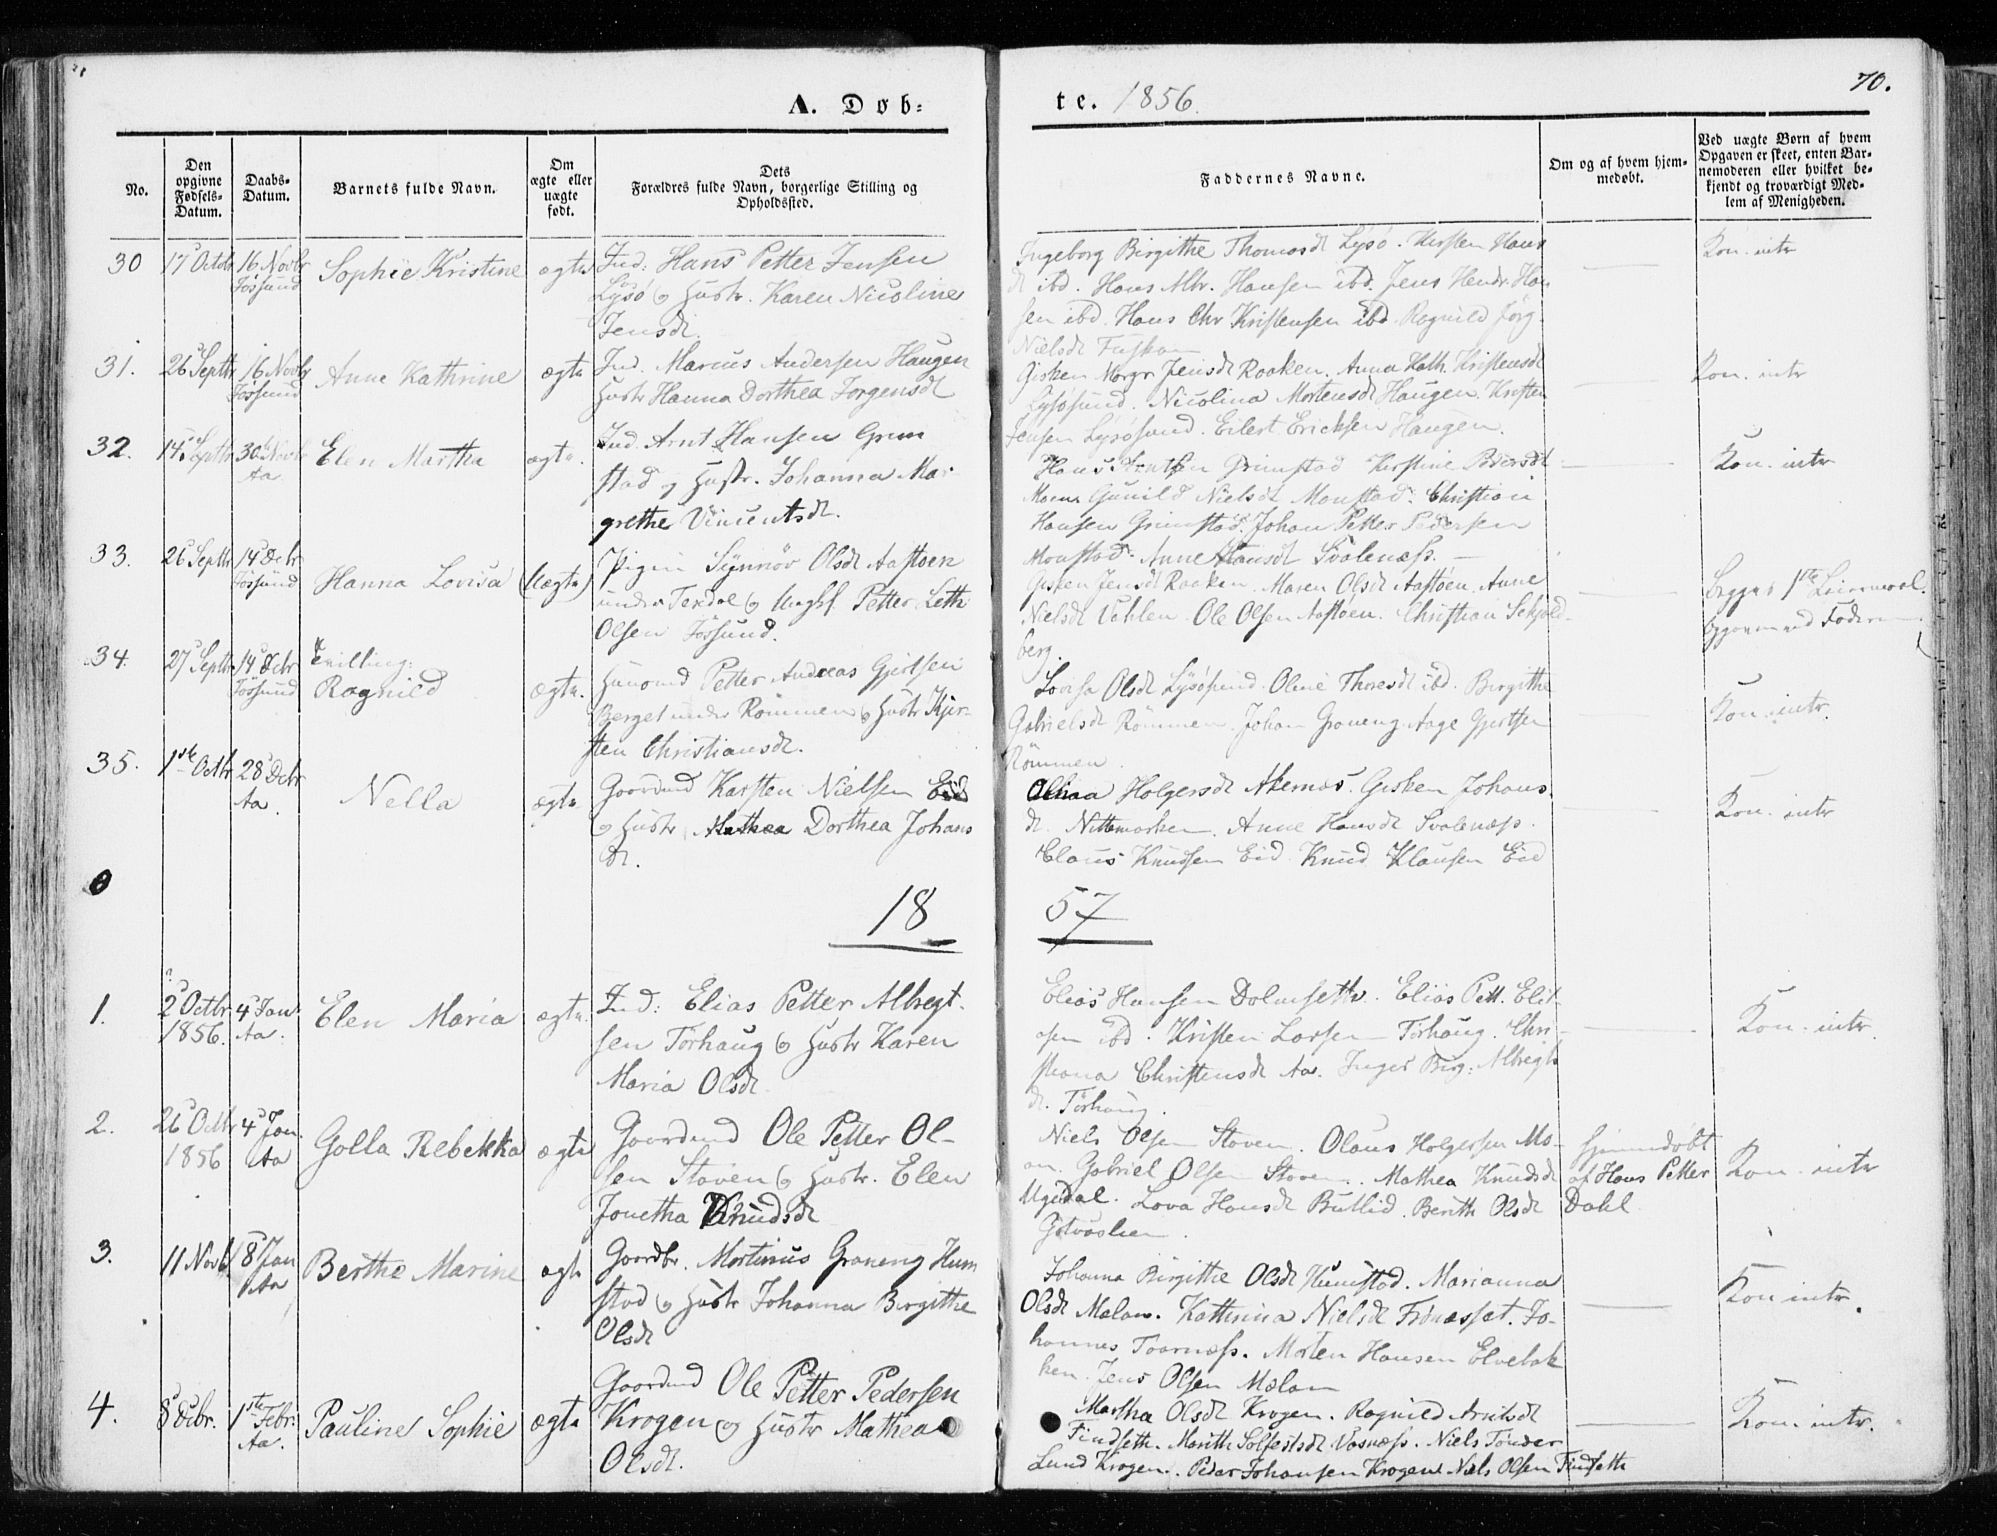 70.
A. Døb-
te. 1856
No.
Den opgivne Fødsels-Datum.
Daabs-Datum.
Barnets fulde Navn.
Om ægte eller uægte født.
Dets Forældres fulde Navn, borgerlige Stilling og Opholdssted.
Faddernes Navne.
Om og af hvem hjem-medøbt.
Ved uægte Børn af hvem Opgaven er skeet, enten Bar-nemoderen eller hvilket be-kjendt og troværdigt Med-lem af Menigheden.
30 17 Octbr 16 Novbr Jössund Sophie Kristine ægte
Ind: Hans Petter Jensen
Lysö og Hustr. Karen Nicoline
Jensdt.
Ingeborg Birgithe Thomasdt Lysö. Kirsten Hans
dt ibd. Hans Albr. Hansen ibd. Jens Hendr. Han
sen ibd. Hans Chr Kristensen ibd. Ragnild Jörg.
Nielsdt
Kon. intr
31. 26 Septbr 16 Novbr Jössund Anne Kathrine ægte
Ind. Marius Andersen Haugen
Hustr Hanna Dorthea Jorgensdt
Gisken Margr Jensdt Raaken. Anna Kath. Kristensdt
Lysösund. Nicolina Mortensdt Haugen. Kristen
Jensen Lysösund. Eilert Ericksen Haugen.
Kon. intr
32. 14 Septbr 30 Novbr Aa Elen Martha ægte.
Ind. Arnt Hansen Grim
stad og Hustr. Johanna Mar-
grethe Vincentsdt.
Hans Arntsen Grimstad Kirstine Pedersdt
Moen. Gunild Nielsdt Monstad. Christian
Hansen Grimstad. Johan Petter Pedersen
Monstad. Anne Hansdt Svalenæss. —
Kon. intr
33. 26 Septbr 14 Decbr Jössund Hanna Lovisa (Uægte)
Pigen Synnöv Olsdt Aastoen
under Terdal og Ungkl. Petter Leth
Olsen Jössund.
Gisken Jensdt Raaken. Maren Olsdt Aastöen. Anne
Nielsdt Vahlen. Ole Olsen Aastoen. Christian Schjold-
berg.
Begges 1ste Leiermaal.
34. 27 Septbr 14 Decbr Jössund Tvilling: Ragnild ægte.
Huusmd Petter Andreas Gjertsen
Berget under Römmen og Hustr Kjer-
sten Christiansdt.
Lovisa Olsdt Lysösund. Oline Thoresdt ibd. Birgithe
Gabrielsdt Römmen. Johan Graneng. Aage Gjertsen
Römmen.
Kon. intr.
35. 1ste Octbr 28 Decbr Aa. Nella ægte
Gaardmd Karsten Nielsen Eid
og Hustr. Mathea Dorthea Johans
dt.
Olina Holgersdt Akernes. Gisken Johans
dt. Nittemarken. Anne Hansdt Svalenæss.
Claus Knudsen Eid. Knud Klausen Eid
Kon. intr
18
57
1. 2 Octbr 1856. 4 Jan Aa. Elen Maria ægte.
Ind: Elias Petter Albregt-
sen Törhaug og Hustr Karen
Maria Olsdt
Elias Hansen Dolmseth. Elias Pett. Elia-
sen ibd. Kristen Larsen Törhaug. Chri-
stiana Christensdt Aa. Inger Birg. Albregts
dt. Törhaug.
Kon. intr.
2. 26 Octbr 1856 4 Jan. Aa Golla Rebekka ægte
Gaardmd Ole Petter Ol-
sen Stoven og Hustr. Elen
Jonetha Knudsdt
Niels Olsen Stoven. Olaus Holgersen Mo-
an. Gabriel Olsen Stoven. Mathea Knudsdt
Ugedal. Lova Hansdt Butlid. Berith Olsdt
hjemmedøbt
af Hans Petter
Dahl.
Kon. intr
3. 11 Novbr 18 Jan Aa Berthe Marine ægte
Gaardbr. Martinus Graneng Hum
stad og Hustr Johanna Birgithe
Olsdt
Johanna Birgithe Olsdt Humstad. Marianna
Olsdt Mælan. Kathrina Nielsdt Frönæsset. Jo-
hannes Taarnæss. Morten Hansen Elvebak
ken. Jens Olsen Mælan
Kon intr.
4. 8 Decbr. 1ste Febr. Aa. Pauline Sophie ægte
Gaardmd Ole Petter Pedersen
Krogen og Hustr Mathea
Olsdt.
Martha Olsdt Krogen. Ragnild Arntsdt
Findseth. Marith Solfestsdt Vasnæss. Niels Tönder
Lund Krogen. Peder Johansen Krogen. Niels Olsen Findseth
Kon. intr.